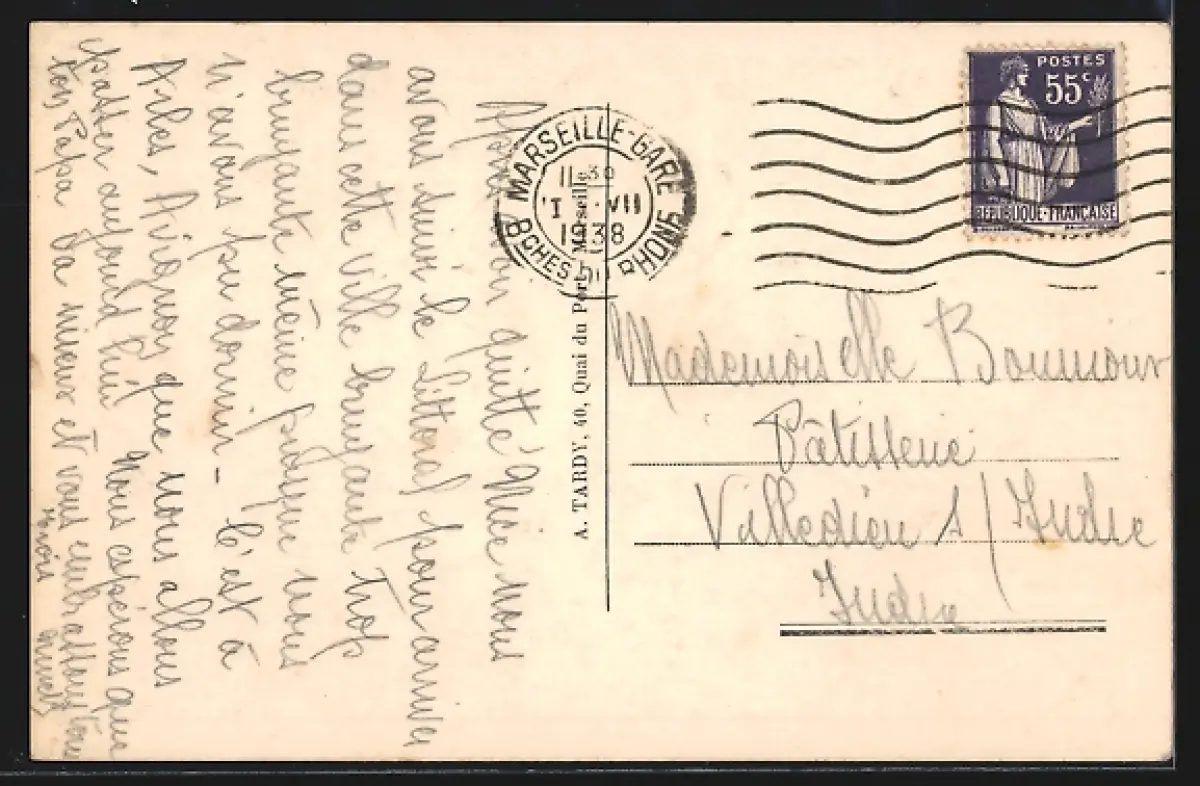 Après avoir quitté Nice nous
avons suivi le Littoral pour arriver
dans cette ville bruyante trop
bruyante même puisque nous
n'avons pu dormir - C'est à
Arles, Avignon que nous allons
passer aujourd'hui Nous espérons que
ton Papa va mieux et vous embrassons tous
A. TARDY, 40, Quai du Port, Marseille
MARSEILLE-GARE
BCHES DU RHONE
11 30
1 VII
1938
POSTES
55c
REPUBLIQUE-FRANÇAISE
Mademoiselle
Pâtisserie
Villedieu s/Indre
Indre